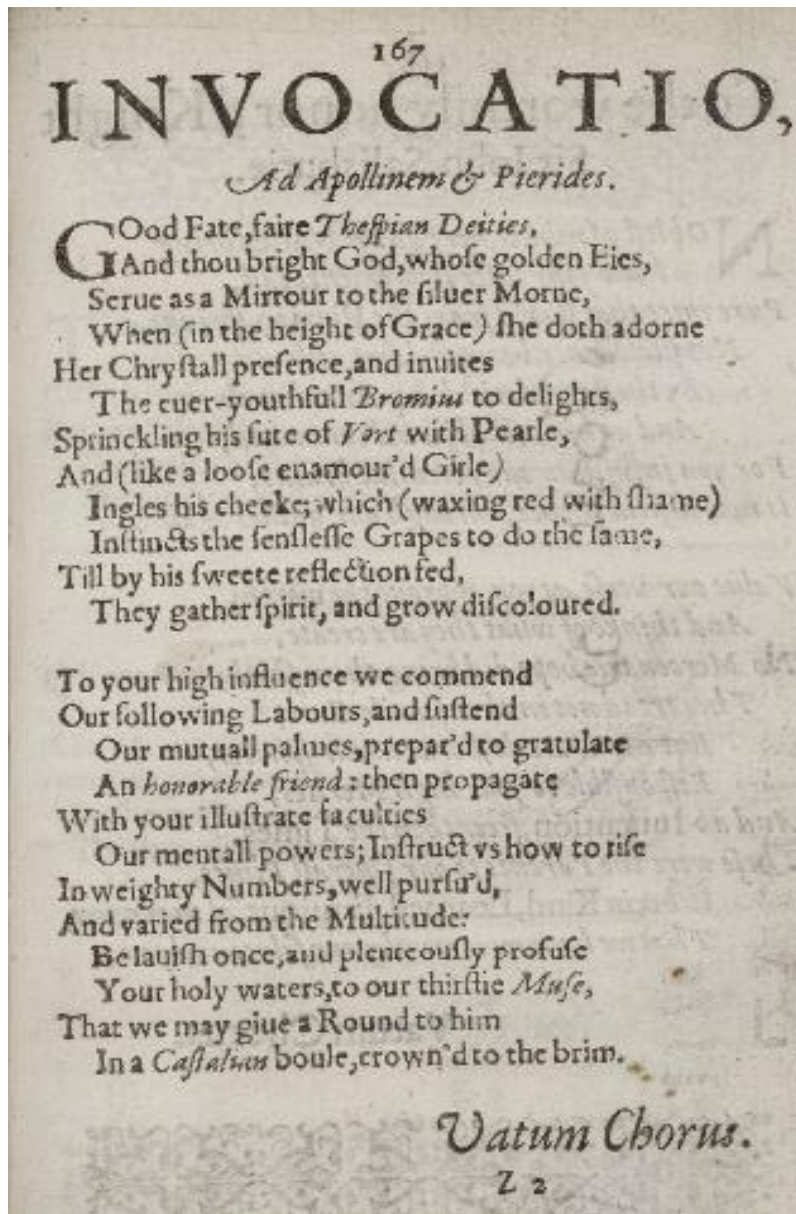 167
INVOCATIO,
Ad Apollinem & Pierides.
GOod Fate, faire Theſpian Deities,
And thou bright God, whoſe golden Eies,
Serue as a Mirrour to the ſiluer Morne,
When (in the height of Grace) ſhe doth adorne
Her Chryſtall preſence, and inuites
The euer-youthfull Bromius to delights,
Sprinckling his ſute of Vert with Pearle,
And (like a looſe enamour'd Girle)
Ingles his cheeke; which (waxing red with ſhame)
Inſtincts the ſenſleſſe Grapes to do the ſame,
Till by his ſweete reflection fed,
They gather ſpirit, and grow diſcoloured.
To your high influence we commend
Our following Labours, and ſuſtend
Our mutuall palmes, prepar'd to gratulate
An honorable friend: then propagate
With your illuſtrate faculties
Our mentall powers; Inſtruct vs how to riſe
In weighty Numbers, well purſu'd,
And varied from the Multitude:
Be lauiſh once, and plenteouſly profuſe
Your holy waters, to our thirſtie Muſe,
That we may giue a Round to him
In a Caſtalian boule, crown'd to the brim.
Vatum Chorus.
Z 2